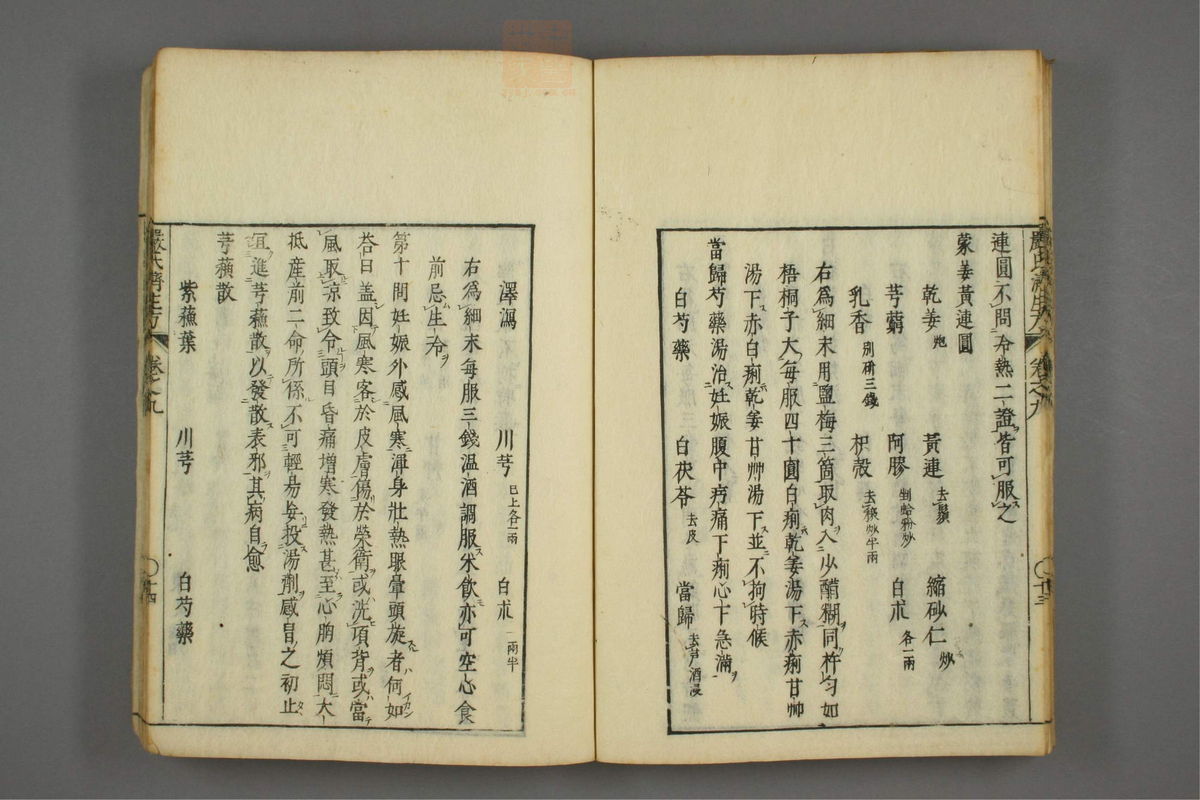 連圓不問冷熱二證皆可服之
蒙姜黃連圓
乾姜炮 黃連去鬚 縮砂仁炒
芎藭 阿膠剉蛤粉炒 白朮各一兩
乳香別研三錢 枳殼去穰炒半兩
右爲細末用鹽梅三箇取肉入少醋糊同杵勻如
梧桐子大每服四十圓白痢乾姜湯下赤痢甘艸
湯下赤白痢乾姜甘艸湯下並不拘時候
當歸芍藥湯治妊娠腹中㽲痛下痢心下急滿
白芍藥 白茯苓去皮 當歸去芦酒浸
嚴氏濟生方 卷之九 十三
澤瀉 川芎已上各一兩 白朮一兩半
右爲細末每服三錢温酒調服米飲亦可空心食
前忌生冷
第十問妊娠外感風寒渾身壯熱眼暈頭旋者何如
荅曰盖因風寒客於皮膚傷於榮衛或洗項背或當
風取凉致令頭目昏痛增寒發熱甚至心胸煩悶大
抵産前二命所係不可輕易妄投湯劑感冒之初止
冝進芎蘓散以發散表邪其病自愈
芎蘓散
紫蘓葉 川芎 白芍藥
嚴氏濟生方 卷之九 十四